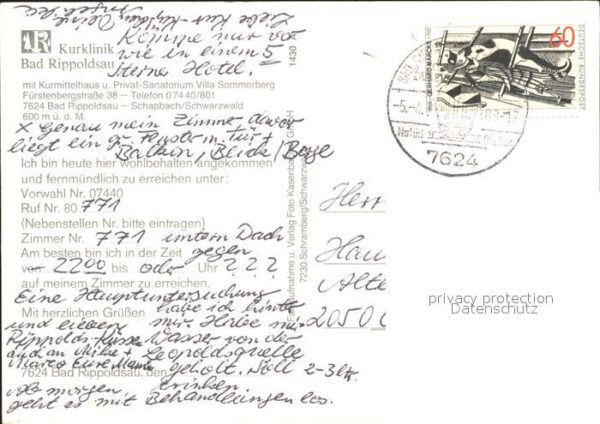 Liebe Kurt-
Deine
Komme mir vor
wie in einem 5
Sterne Hotel.
Kurklinik
Bad Rippoldsau
mit Kurmittelhaus u. Privat-Sanatorium Villa Sommerberg
Fürstenbergstraße 38 – Telefon 07440/801
7624 Bad Rippoldsau – Schapbach/Schwarzwald
600 m ü. d. M.
x Genau mein Zimmer davor
liegt ein gr. Fenster m. Tür +
Balkon, Blick/Berge
Ich bin heute hier wohlbehalten angekommen
und fernmündlich zu erreichen unter:
Vorwahl Nr. 07440
Ruf Nr. 80 771
(Nebenstellen Nr. bitte eintragen)
Zimmer Nr. 771 unterm Dach
Am besten bin ich in der Zeit gegen
von 2200 bis oder Uhr ? ? ?
auf meinem Zimmer zu erreichen.
Eine Hauptuntersuchung
habe ich hinter
Mit herzlichen Grüßen
mir. Hole mir
und lieben
Rippolds-Küssen Wasser von der
auch an Mike + Leopoldsquelle
Marco Eure
geholt. Soll 2-3 ltr.
7624 Bad Rippoldsau, den
trinken.
Ab morgen
geht es mit Behandlungen los.
1430
Farbaufnahme u. Verlag Foto Kasenbacher GmbH
7230 Schramberg/Schwarzwald
60
DEUTSCHE BUNDESPOST
GERHARD MARCKS
7624
Herr
Hau
Alte
2050
privacy protection
Datenschutz